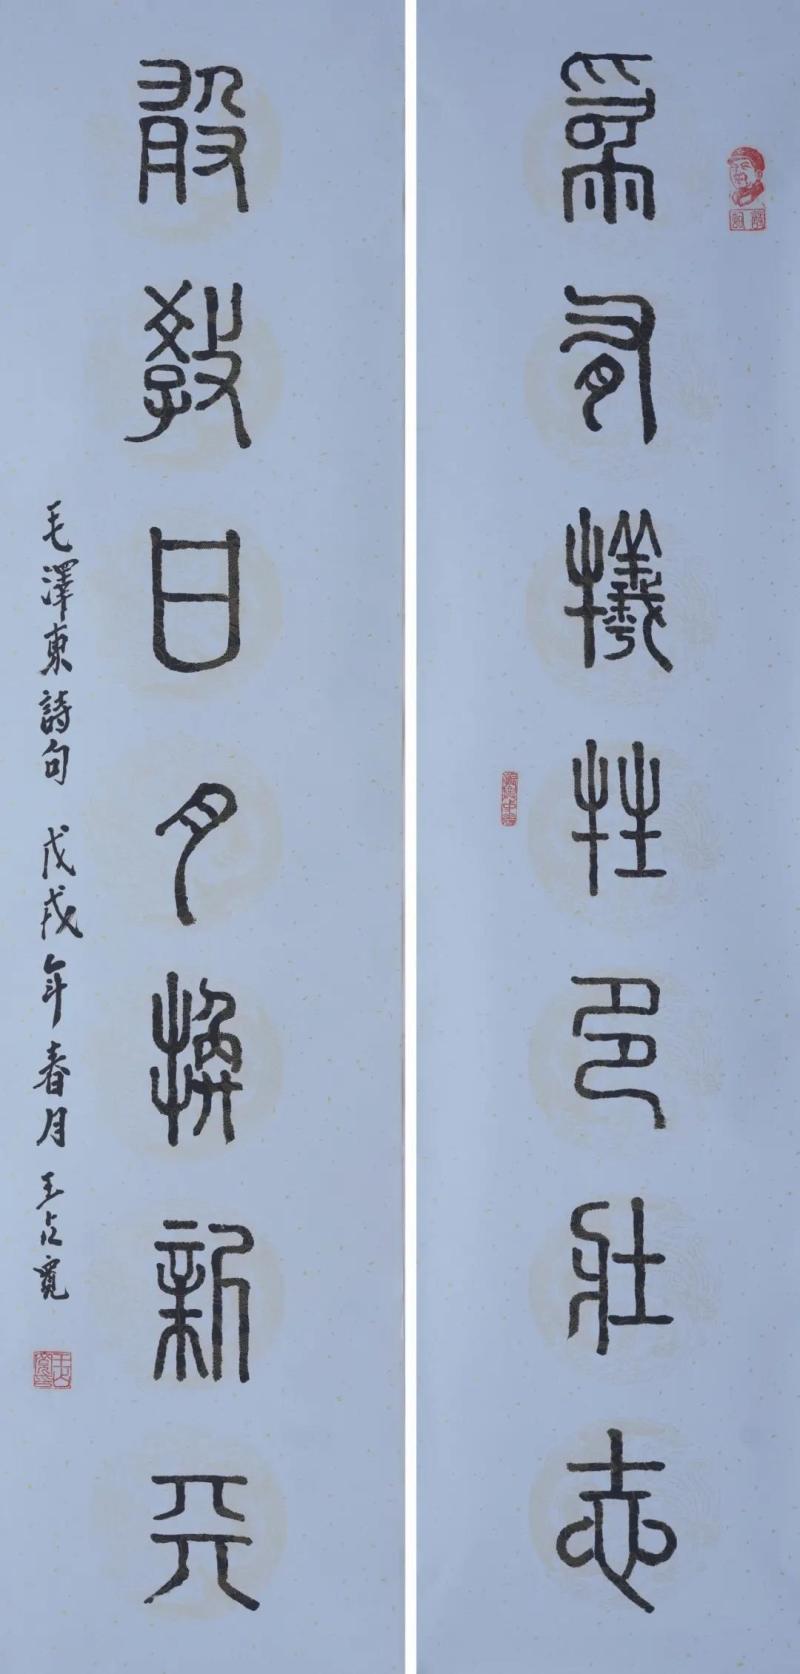 為有犧牲多壯志
敢教日月換新天
毛澤東詩句 戊戌年春月 王占寬